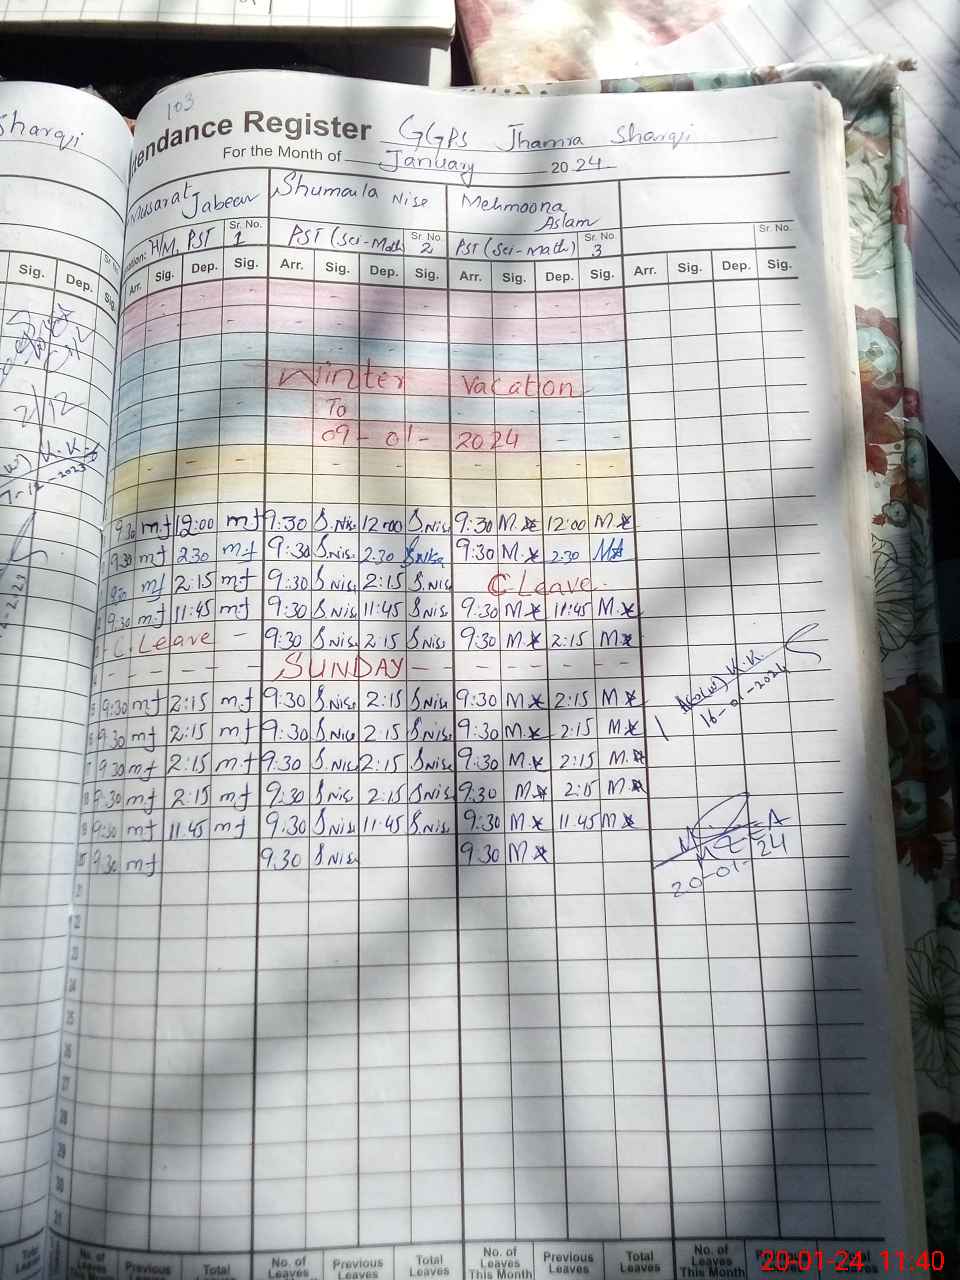 103
Sharqi
tendance Register GGPS Jhamra Sharqi
For the Month of January 2024
Musarat Jabeen Shumaila Nise Mehmoona Aslam
nation: H/M, PST Sr. No. 1 PST (Sci-Math) Sr. No. 2 PST (Sci-math) Sr. No. 3 Sr. No.
Sig. Dep. Sig. Arr. Sig. Dep. Sig. Arr. Sig. Dep. Sig. Arr. Sig. Dep. Sig. Arr. Sig. Dep. Sig.
Winter Vacation
To
09-01-2024
9:30 mf 12:00 mf 9:30 S.Nis. 12:00 S.Nis. 9:30 M.* 12:00 M.*
9:30 mf 2:30 m.f 9:30 S.Nis. 2:30 9:30 M.* 2:30 M*
9:30 mf 2:15 mf 9:30 S.Nis 2:15 S.Nis. C Leave.
9:30 mf 11:45 mf 9:30 S.Nis 11:45 S.Nis. 9:30 M.* 11:45 M.*
C. Leave - 9:30 S.Nis 2:15 S.Nis 9:30 M* 2:15 M*
- - - - SUNDAY - - - - - -
9:30 mf 2:15 mf 9:30 S.Nise 2:15 S.Nis. 9:30 M* 2:15 M*
9:30 mf 2:15 mf 9:30 S.Nise 2:15 S.Nise 9:30 M.* 2:15 M*
9:30 mf 2:15 mf 9:30 S.Nis 2:15 S.Nise 9:30 M.* 2:15 M.*
9:30 mf 2:15 mf 9:30 S.Nis. 2:15 S.Nise 9:30 M* 2:15 M*
9:30 mf 11:45 mf 9:30 S.Nis 11:45 S.Nis. 9:30 M.* 11:45 M*
9:30 mf 9.30 S.Nis. 9:30 M*
K.K.
16-01-2024
20-01-24
21
22
23
24
25
26
27
28
29
30
31
Total Leaves No. of Previous Leaves Total Leaves No. of Leaves This Month Previous Leaves Total Leaves No. of Leaves This Month Previous Leaves Total Leaves No. of Leaves This Month
20-01-24 11:40